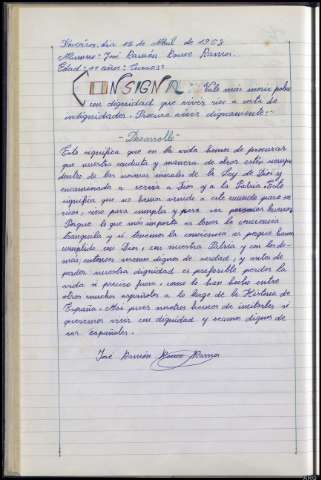 día 18 de Abril de 1968
Alumno: José Ramón Ramos.
Edad: 11 años: Curso: 5º
CONSIGNA: Vale más morir pobre
con dignidad que vivir rico a costa de
indignidades. Procura vivir dignamente:-
-Desarrollo-
Esto significa que en la vida hemos de procurar
que nuestra conducta y manera de obrar estén siempre
dentro de las normas morales de la Ley de Dios y
encaminada a servir a Dios y a la Patria. Esto
significa que no hemos venido a este mundo para ser
ricos, sino para cumplir y para ser buenos.
Porque lo que más importa es tener la conciencia
tranquila y si tenemos la conciencia es porque hemos
cumplido con Dios, con nuestra Patria y con los de-
más; entonces seremos dignos de verdad; y antes de
perder nuestra dignidad es preferible perder la
vida si preciso fuera, como lo han hecho entre
otros muchos españoles a lo largo de la Historia de
España. Así pues nosotros hemos de imitarles si
queremos vivir con dignidad y seamos dignos de
ser españoles.
José Ramón Ramos